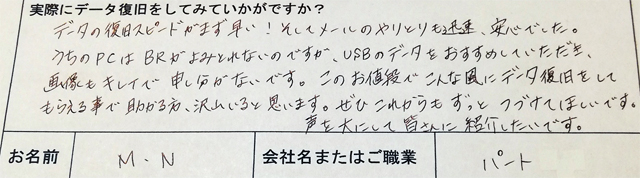 実際にデータ復旧をしてみていかがですか？
データの復旧スピードがまず早い！そしてメールのやりとりも迅速、安心でした。
うちのPCはBRがよみとれないのですが、USBのデータをおすすめしていただき、
画像もキレイで申し分がないです。このお値段でこんな風にデータ復旧をして
もらえる事で助かる方、沢山いると思います。ぜひこれからもずっとつづけてほしいです。
声を大にして皆さんに紹介したいです。
お名前 M・N 会社名またはご職業 パート